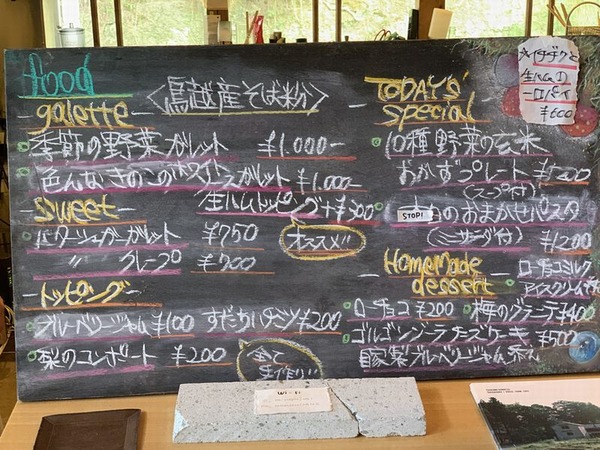 food
galette
〈鳥越産そば粉〉
季節の野菜ガレット ¥1.000-
色んなきのこのホワイトソースガレット ¥1.000-
生ハムトッピング+¥300
オススメ!!
sweet
バターシュガーガレット ¥750
〃 クレープ ¥700
トッピング
ブルーベリージャム ¥100 すだちハチミツ ¥200
梨のコンポート ¥200
全て手作り!!
TODAY'S special
10種野菜の玄米
おかずプレート
(スープ付)
STOP!
のおまかせパスタ
(ミニサラダ付) ¥1200
HomeMade dessert
ローチョコミルク
アイスクリーム
ローチョコ ¥200
梅のグラニテ ¥400
ゴルゴンゾーラチーズケーキ ¥500
自家製ブルーベリージャム添え
イチヂクと
生ハムの
一口パイ
¥600